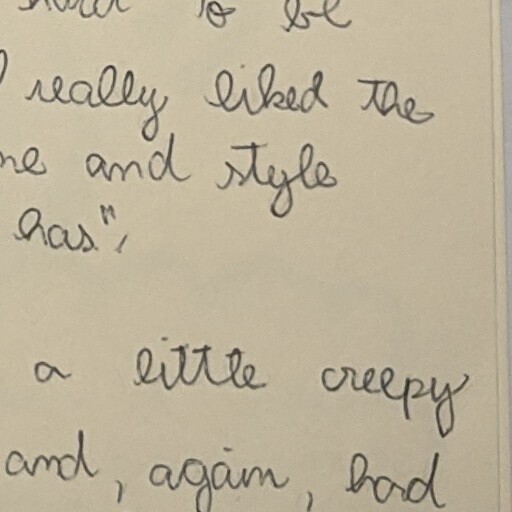 to be
really liked the
and style
has",
a little creepy
and, again, had